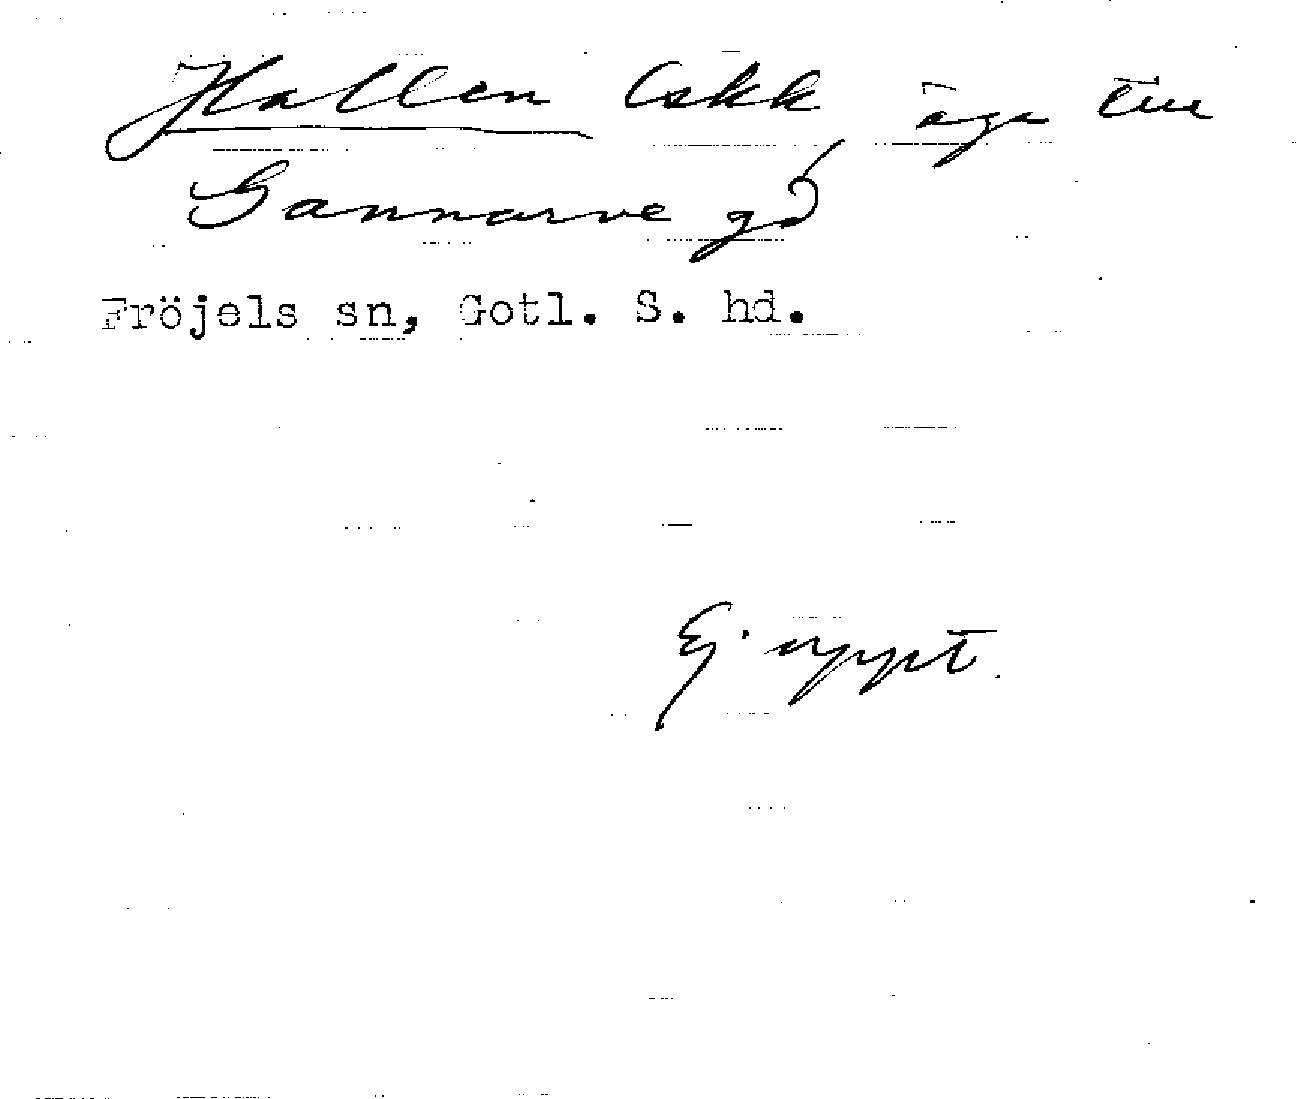 Hallen äga till
Gannarve gd
Fröjels sn, Gotl. S. hd.
Ej uppt.